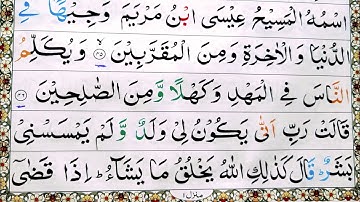 اسْمُهُ الْمَسِيْحُ عِيْسَى ابْنُ مَرْيَمَ وَجِيْهًا فِي
الدُّنْيَا وَالْاٰخِرَةِ وَمِنَ الْمُقَرَّبِيْنَ ﴿٤٥﴾ وَيُكَلِّمُ
النَّاسَ فِي الْمَهْدِ وَكَهْلًا وَّمِنَ الصّٰلِحِيْنَ ﴿٤٦﴾
قَالَتْ رَبِّ اَنّٰى يَكُوْنُ لِيْ وَلَدٌ وَّلَمْ يَمْسَسْنِيْ
بَشَرٌ ؕ قَالَ كَذٰلِكِ اللّٰهُ يَخْلُقُ مَا يَشَآءُ ؕ اِذَا قَضٰۤى
منزل ١